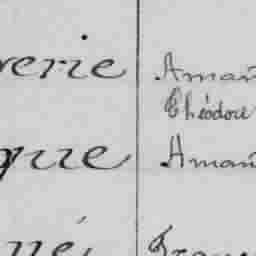 verie Aman
Théodore
que Aman
né Fran